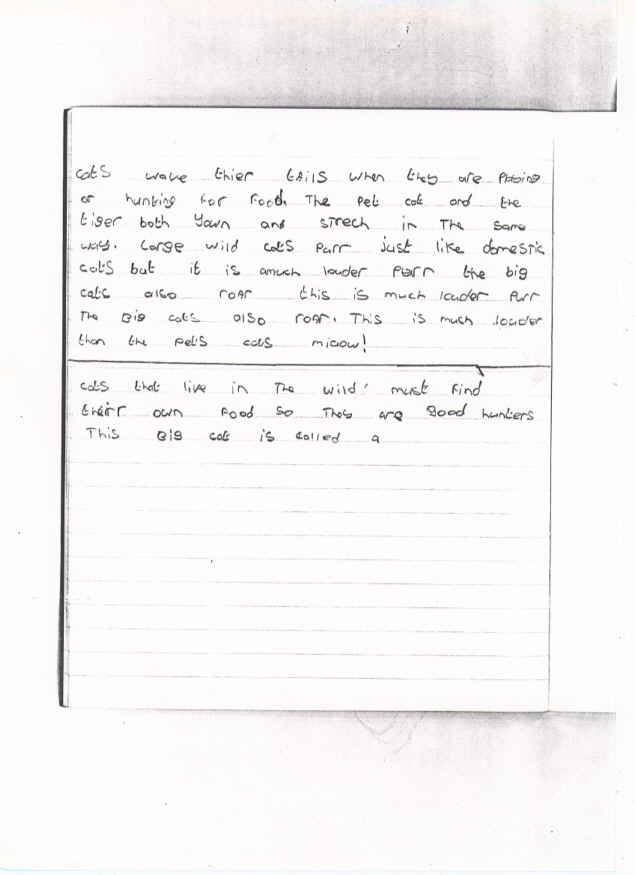 cats wave thier tails when they are Plaing
or hunting for food. The pet cat and the
tiger both Yawn and strech in The same
way. Large wild cats Purr just like domestic
cats but it is amuch louder Purr the big
cats also roar this is much louder Purr
The Big cats also roar. This is much louder
than the pets cats miaow!
cats that live in The wild must find
their own food so They are good hunters
This Big cat is called a